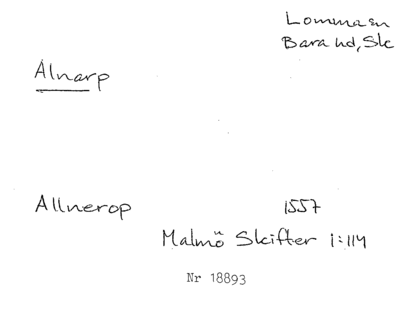 Lomma sn
Bara hd, Sk
Alnarp
Allnerop 1557
Malmö Skifter 1:114
Nr 18893